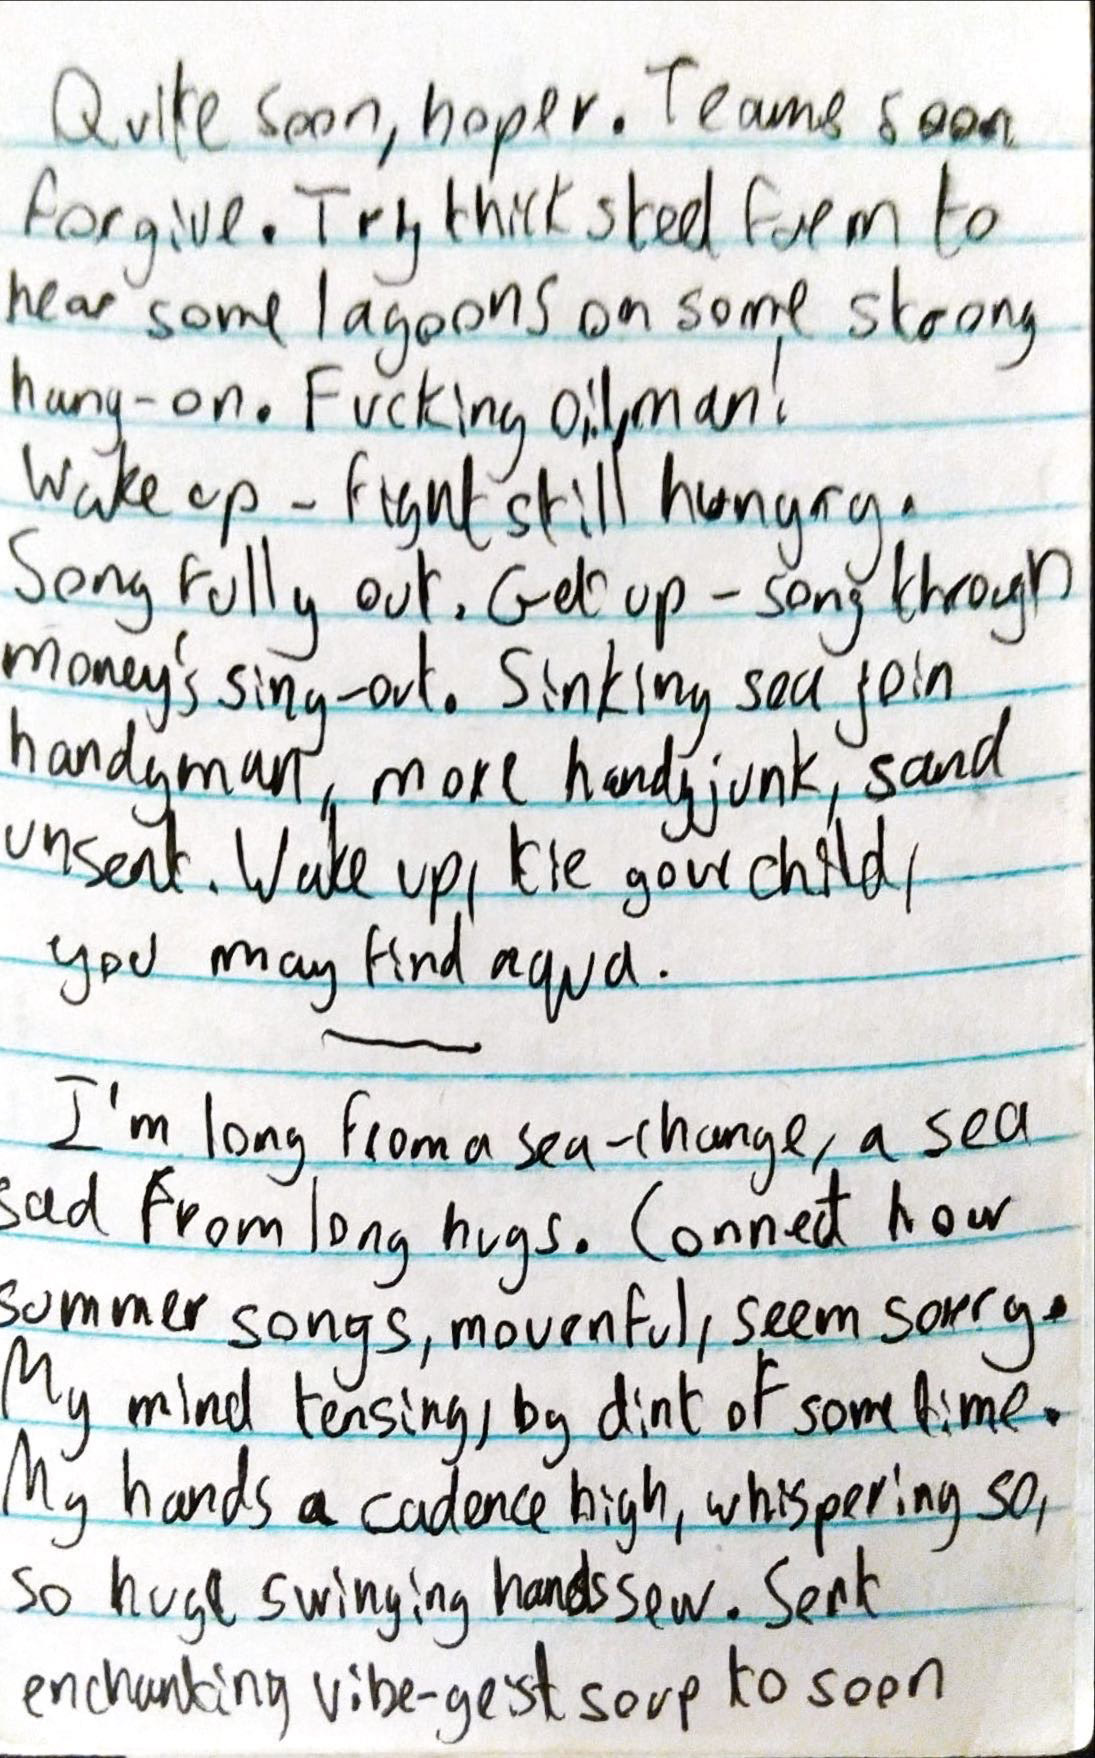 Quite soon, hoper. Teams soon
forgive. Try thick steel farm to
hear some lagoons on some strong
hang-on. Fucking oil, man!
Wake up - fight still hungry.
Song fully out. Get up - song through
money's sing-out. Sinking sea join
handyman, more handyjunk, sand
unsent. Wake up, tie your child,
you may find aqua.
I'm long from a sea-change, a sea
sad from long hugs. Connect how
summer songs, mournful, seem sorry.
My mind tensing, by dint of some time.
My hands a cadence high, whispering so,
so huge swinging hands sew. Sent
enchanting vibe-geist soup to soon